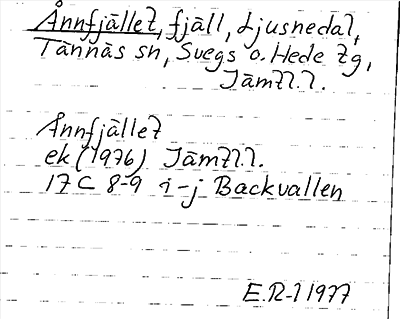 Ånnfjället, fjäll, Ljusnedal,
Tännäs sn, Svegs o. Hede tg,
Jämtl.l.
Ånnfjället
ek (1976) Jämtl.l.
17 C 8-9 i-j Backvallen
E.R-l 1977